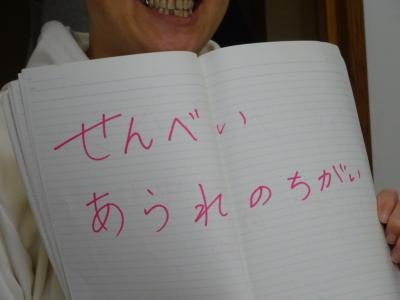 せんべい
あられのちがい